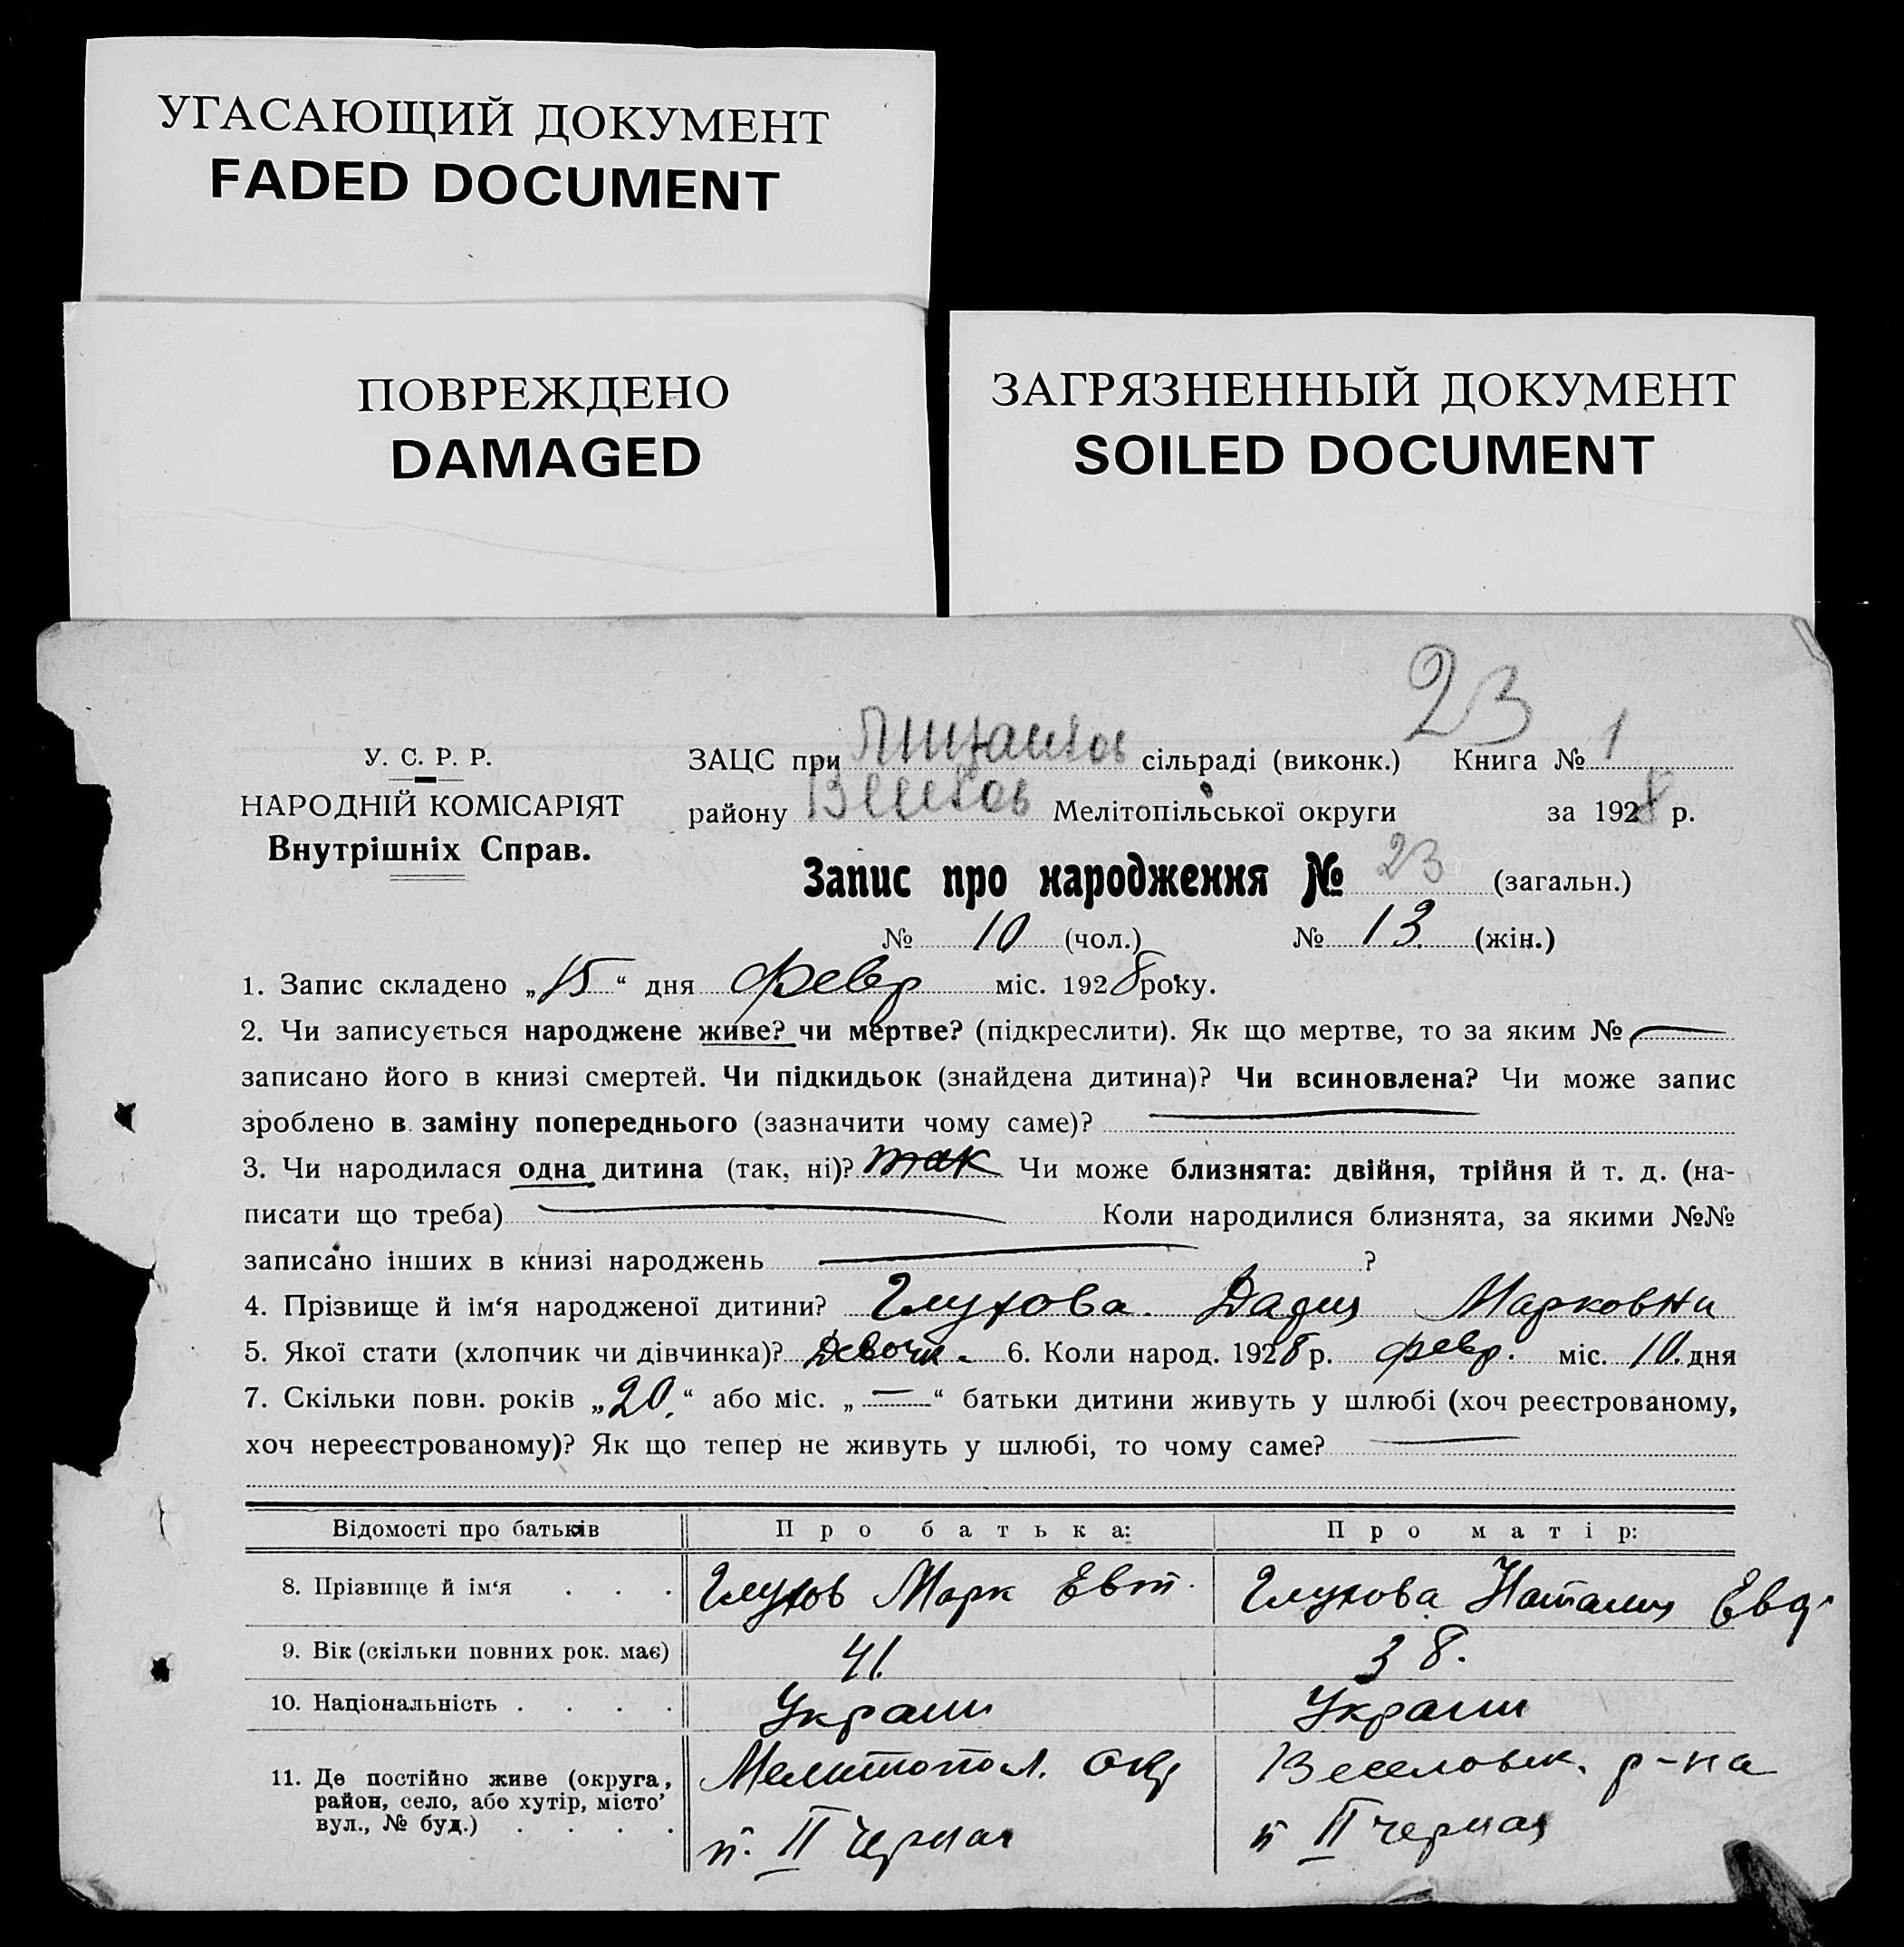 УГАСАЮЩИЙ ДОКУМЕНТ
FADED DOCUMENT
ПОВРЕЖДЕНО
DAMAGED
ЗАГРЯЗНЕННЫЙ ДОКУМЕНТ
SOILED DOCUMENT
23
У. С. Р. Р.
НАРОДНІЙ КОМІСАРІЯТ
Внутрішніх Справ.
ЗАЦС при сільраді (виконк.) Книга № 1
району Мелітопільської округи за 1928 р.
Запис про народження № 23 (загальн.)
№ 10 (чол.) № 13 (жін.)
1. Запис складено „15“ дня февр міс. 1928 року.
2. Чи записується народжене живе? чи мертве? (підкреслити). Як що мертве, то за яким № —
записано його в книзі смертей. Чи підкидьок (знайдена дитина)? Чи всиновлена? Чи може запис
зроблено в заміну попереднього (зазначити чому саме)? —
3. Чи народилася одна дитина (так, ні)? так Чи може близнята: двійня, трійня й т. д. (на-
писати що треба) — Коли народилися близнята, за якими №№
записано інших в книзі народжень — ?
4. Прізвище й ім‘я народженої дитини? Глухова. Марковна
5. Якої стати (хлопчик чи дівчинка)? Девочк. 6. Коли народ. 1928 р. февр. міс. 10. дня
7. Скільки повн. років „20.“ або міс. „—“ батьки дитини живуть у шлюбі (хоч реєстрованому,
хоч нереєстрованому)? Як що тепер не живуть у шлюбі, то чому саме? —
Відомості про батьків Про батька: Про матір:
8. Прізвище й ім‘я . . . Глухов Марк Евт. Глухова Наталия Евд.
9. Вік (скільки повних рок. має) 41. 38.
10. Національність . . . . Украин Украин
11. Де постійно живе (округа, район, село, або хутір, місто, вул., № буд.) . . . . Мелитопол. окр Веселовск. р-на
п. II Черная п II черная